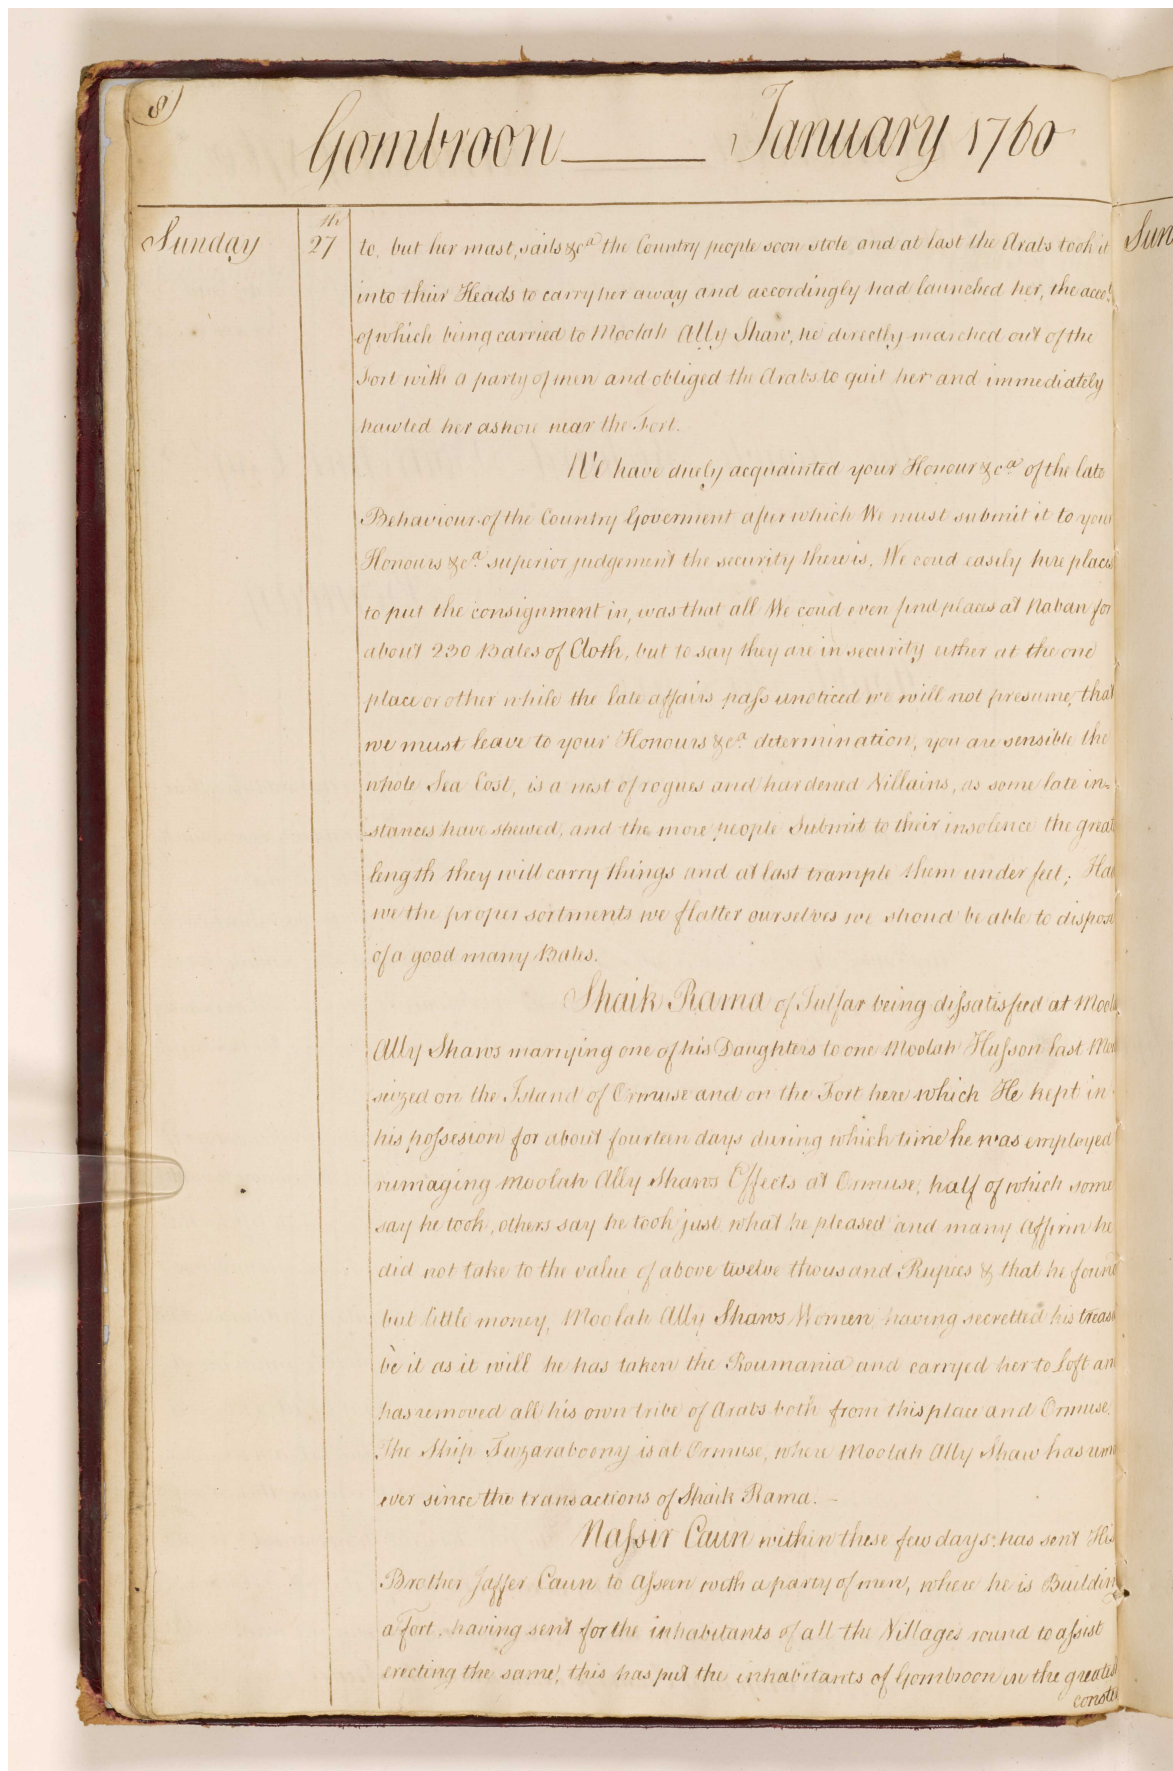 8)
Gombroon January 1760
Sunday 27th to, but her mast, sails &ca the Country people soon stole and at last the Arabs took it
into their Heads to carry her away and accordingly had launched her, the acco.t
of which being carried to Moolah Ally Shaw, he directly marched out of the
Fort with a party of men and obliged the Arabs to quit her and immediately
hawled her ashore near the Fort.
We have duely acquainted your Honour &ca of the late
Behaviour of the Country Goverment after which We must submit it to your
Honours &ca superior judgement the security there is, We coud easily hire places
to put the consignment in, was that all We coud even find places at Naban for
about 230 Bales of Cloth, but to say they are in security either at the one
place or other while the late affairs pass unoticed we will not presume, that
we must leave to your Honours &ca determination, you are sensible the
whole Sea Cost, is a nest of rogues and hardened Villains, as some late in-
stances have shewed, and the more people Submit to their insolence the great
length they will carry things and at last trample them under feet; Had
we the proper sortments we flatter ourselves we shoud be able to dispose
of a good many Bales.
Shaik Rama of Julfar being dissatisfied at Mool
Ally Shaws marrying one of his Daughters to one Moolah Husson last Mo
seized on the Island of Ormuse and on the Fort here which He kept in
his possesion for about fourteen days during which time he was employed
rumaging Moolah Ally Shaws Effects at Ormuse, half of which some
say he took, others say he took just what he pleased and many affirm he
did not take to the value of above twelve thousand Rupees & that he found
but little money, Moolah Ally Shaws Women having secretted his treas
be it as it will he has taken the Roumania and carryed her to Loft an
has removed all his own tribe of Arabs both from this place and Ormuse.
The Ship Fuzaraboony is at Ormuse, where Moolah Ally Shaw has
ever since the transactions of Shaik Rama.
Nassir Caun within these few days has sent His
Brother Jaffer Caun to Asseen with a party of men, where he is Building
a fort, having sent for the inhabitants of all the Villages round to assist
erecting the same, this has put the inhabitants of Gombroon in the greatest
conste
Sun